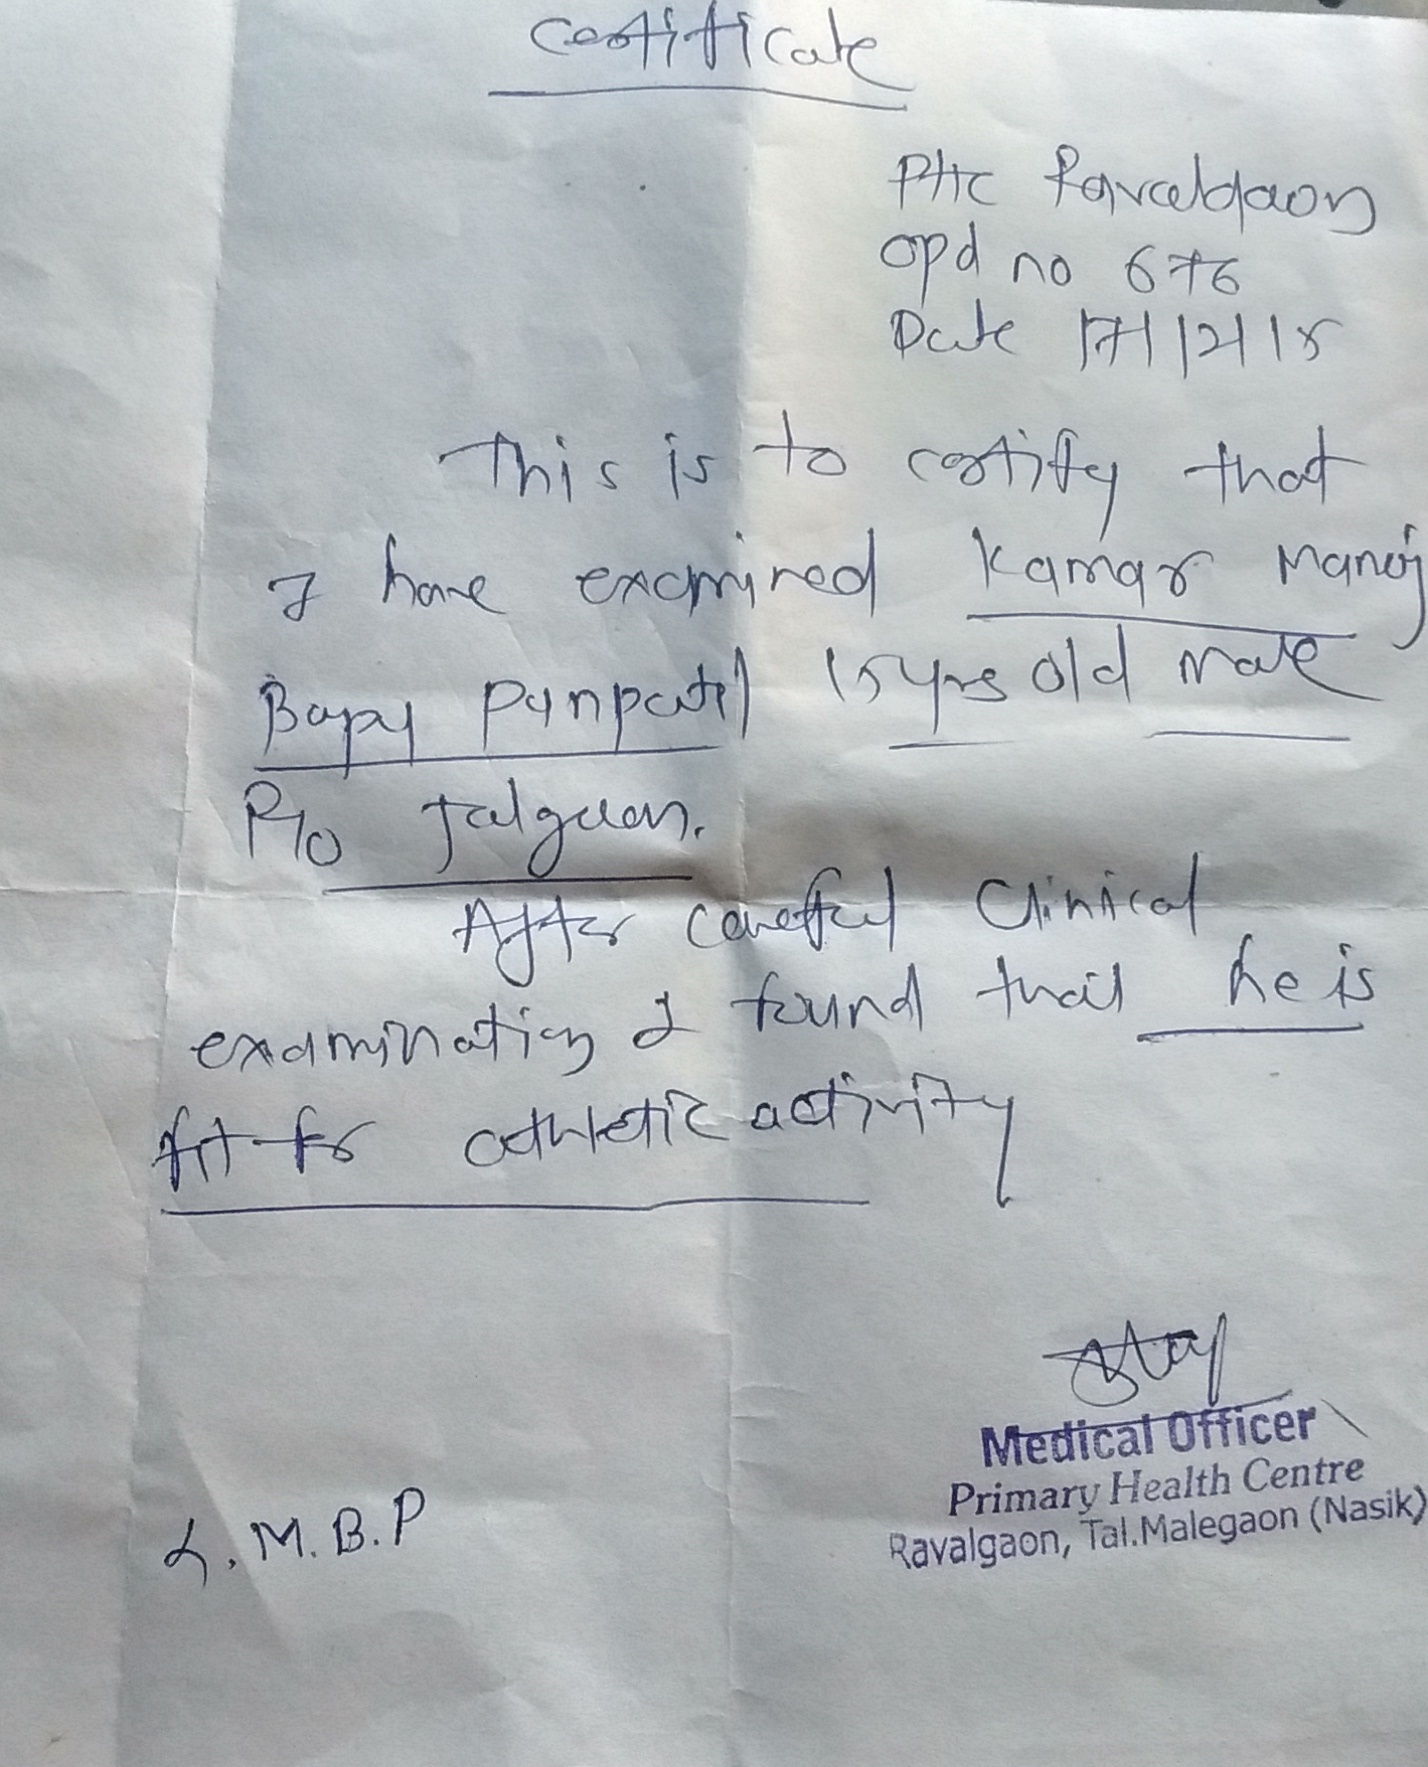 Certificate
PHC Ravalgaon
opd no 676
Date 17/12/18
This is to certify that
I have examined Kamar Manoj
Bapu Panpatil 15 yrs old male
R/o Jalgaon.
After careful Clinical
examination I found that he is
fit for athletic activity
Medical Officer
Primary Health Centre
Ravalgaon, Tal.Malegaon (Nasik)
L. M. B. P